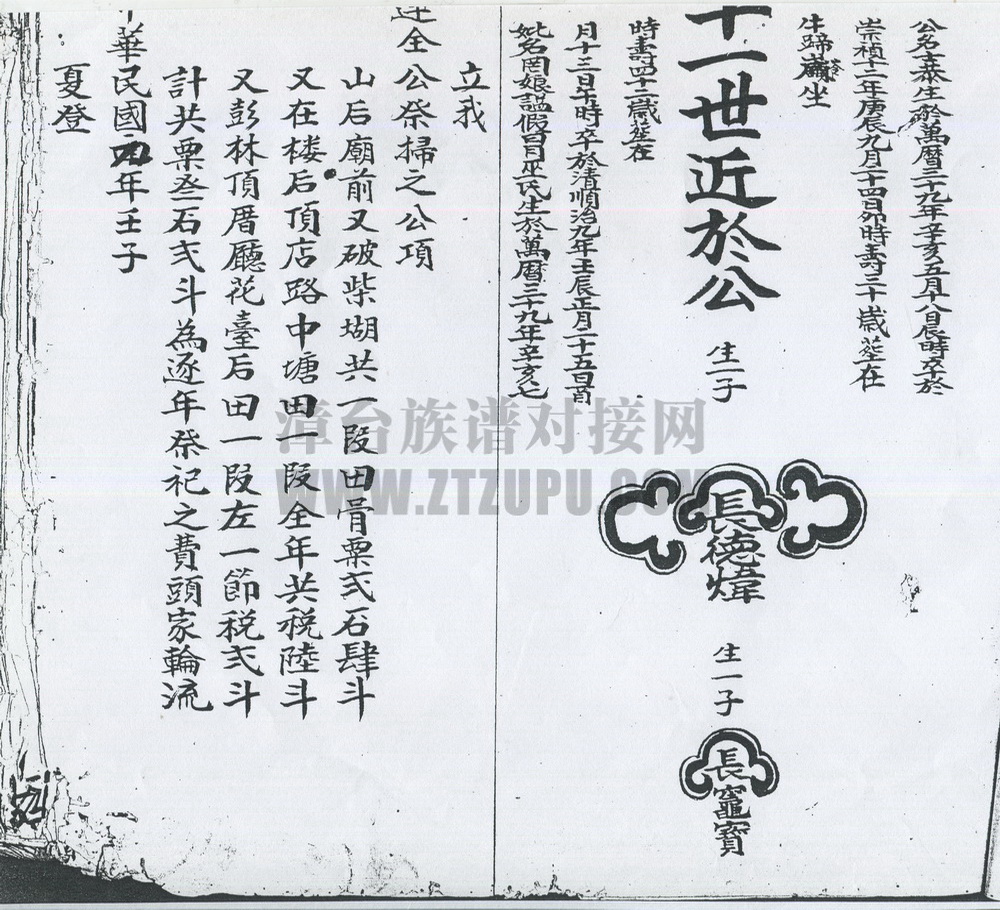 公名士泰生於萬曆三十九年辛亥五月十八日辰時卒於
崇禎十二年庚辰九月十四日卯時壽三十歲塟在
生蹄
坐
十一世近於公
生一子
長德煒
生一子
長竈寶
時壽四十二歲塟在
月十三日午時卒於清順治九年壬辰正月二十五日酉
妣名罔娘謚假司巫氏生於萬曆三十九年辛亥七
立我
達全公祭掃之公項
山后廟前又破柴坳共一段田骨粟弍石肆斗
又在楼后頂店路中塘田一段全年共税陸斗
又彭林頂厝廳花臺后田一段左一節税弍斗
計共粟叁石弍斗為逐年祭祀之費頭家輪流
中華民國元年壬子
夏登
漳台族谱对接网
WWW.ZTZUPU.COM